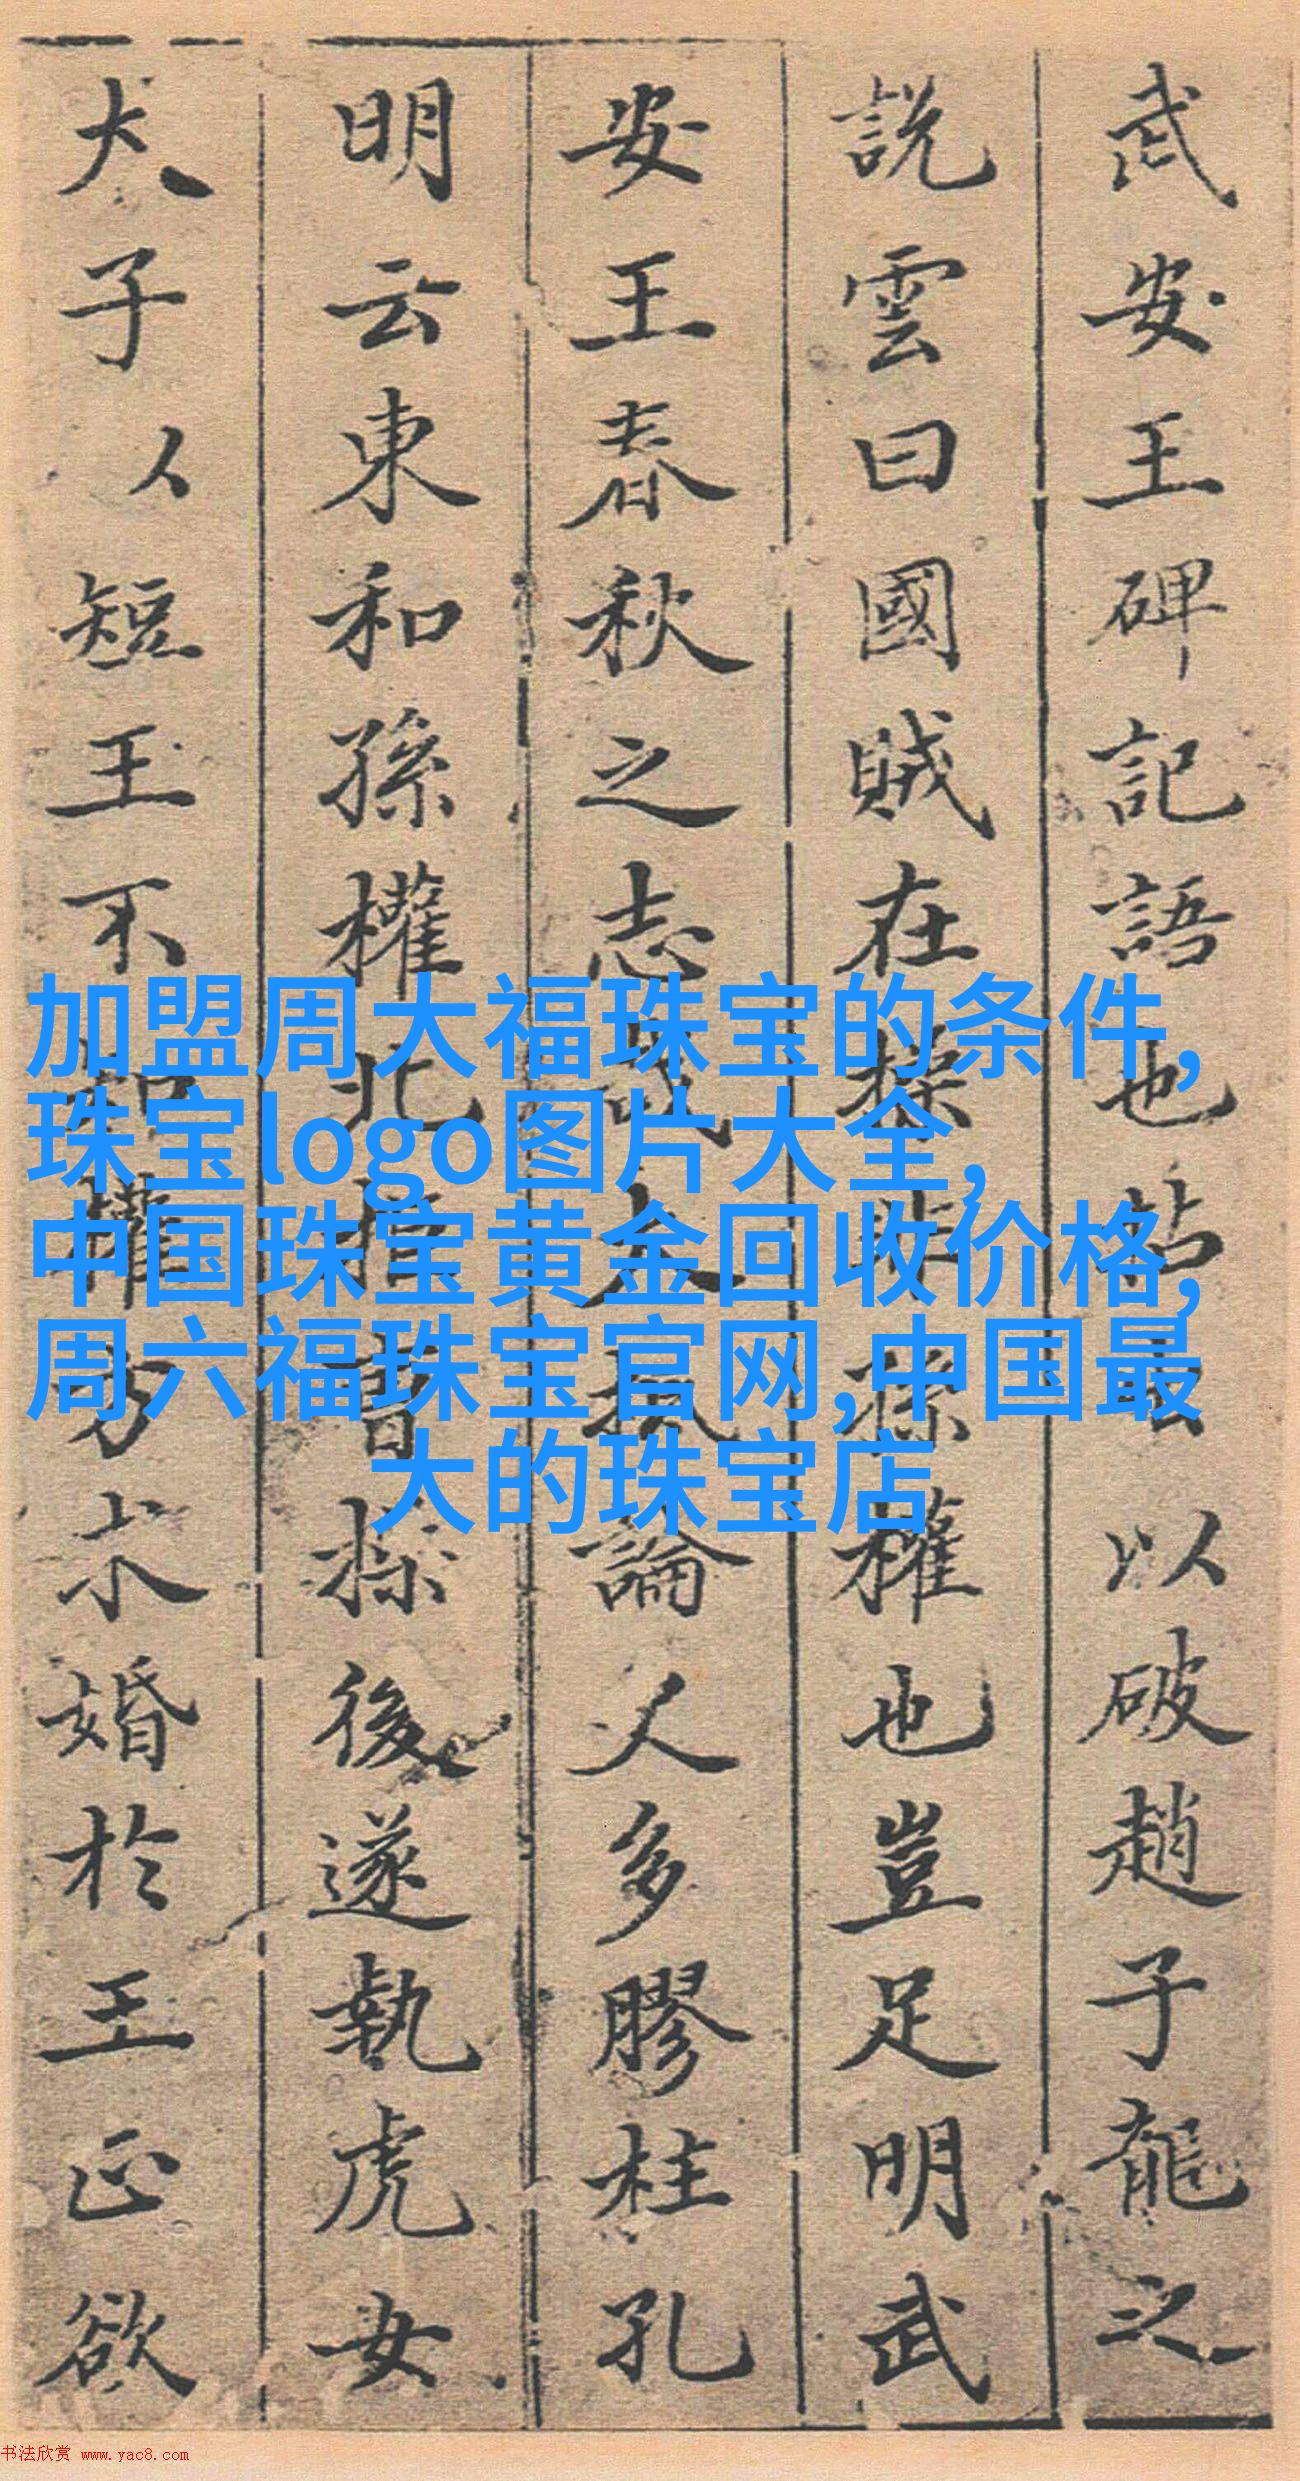 武安王碑記語也以破趙子龍之
說雲曰國賊在操非孫權也豈足明武
安王春秋之志哉大抵論人多膠柱孔
明云東和孫權北拒曹操後遂執虎女
犬子以短王不知權方求婚於王正欲
加盟周大福珠宝的条件,
珠宝logo图片大全,
中国珠宝黄金回收价格,
周六福珠宝官网,中国最
大的珠宝店
书法欣赏 www.yac8.com